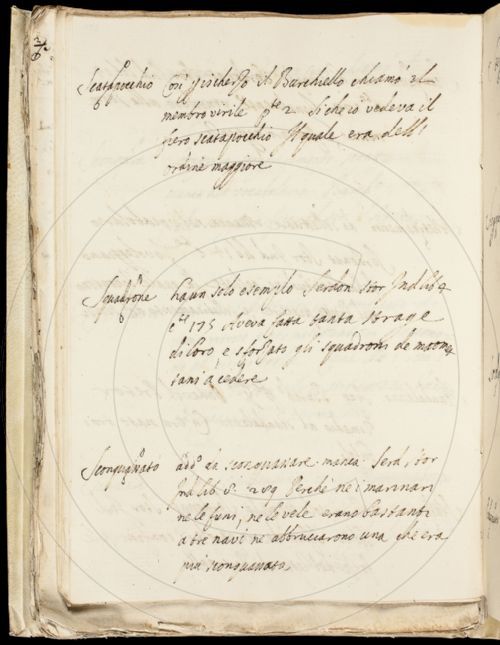 Scatapocchio Così p ischerzo il Burchiello chiamò il
membro virile pte 2 Siche io vedeva il
fiero scatapocchio Il quale era dell
ordine maggiore
Squadrone ha un solo esempio Serdon Stor Ind lib 4
cte 175 Aveva fatta tanta strage
di loro e sforzato gli squadroni de maome
tani a cedere
Sconquassato add da sconquassare manca Serd, stor
Ind lib 8. 289 Perche ne i marinari
ne le funi, ne le vele erano bastanti
a tre navi ne abbruciarono una che era
piu sconquassata